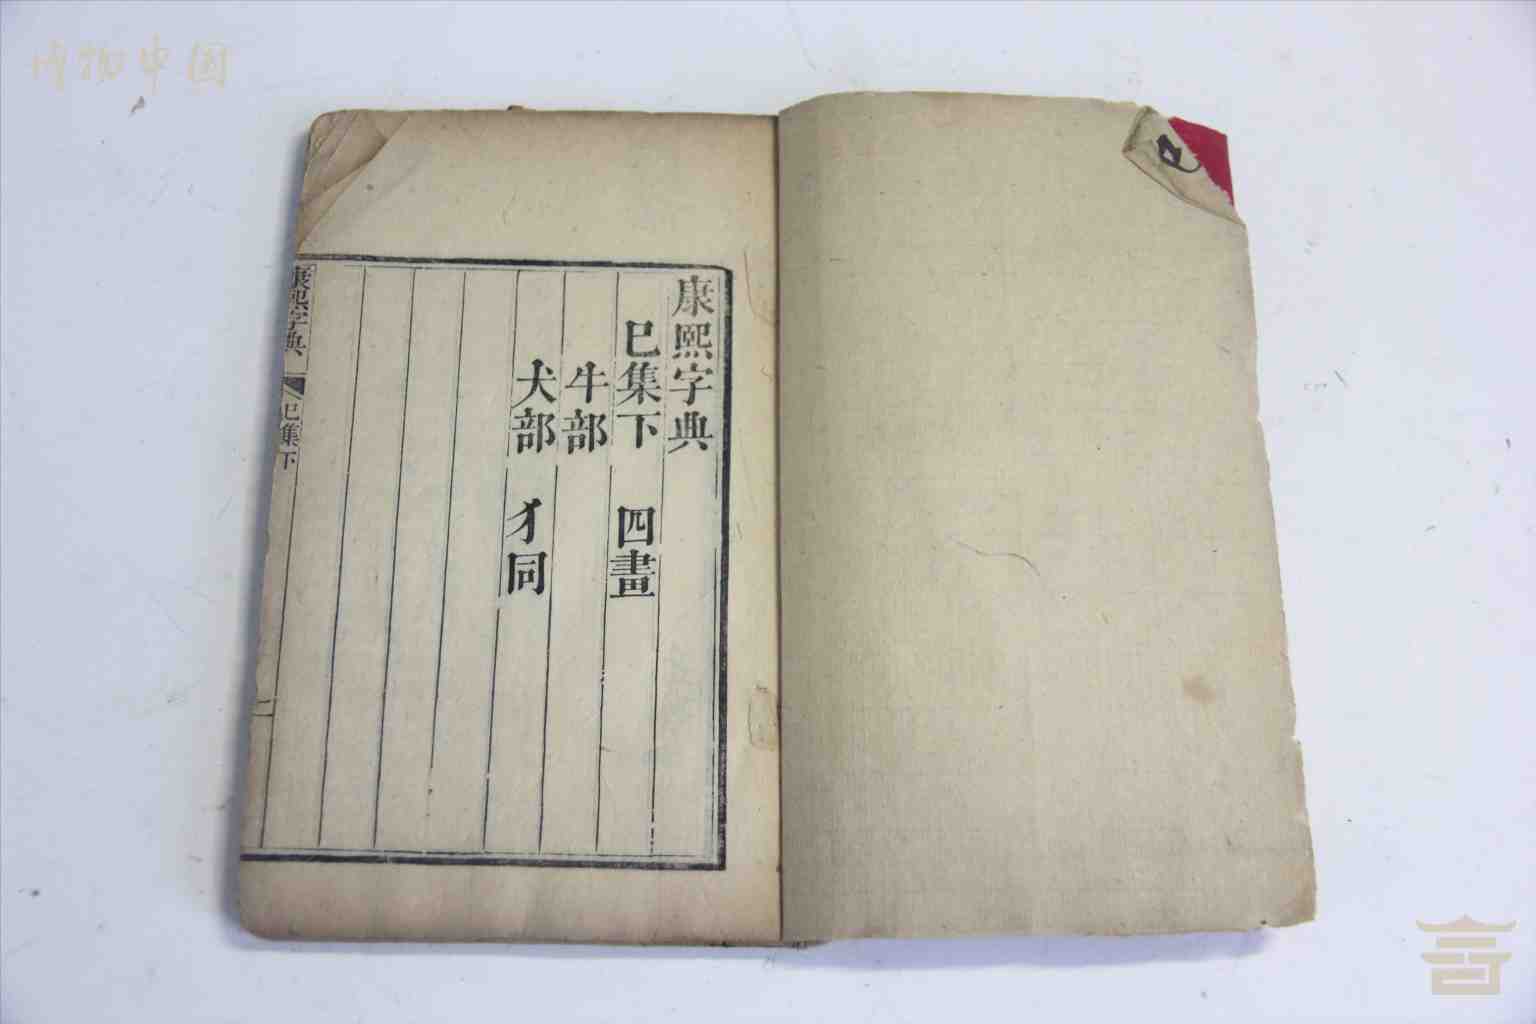 康熙字典
巳集下 四畫
牛部
犬部 犭同
康熙字典
巳集下
二
博物中国